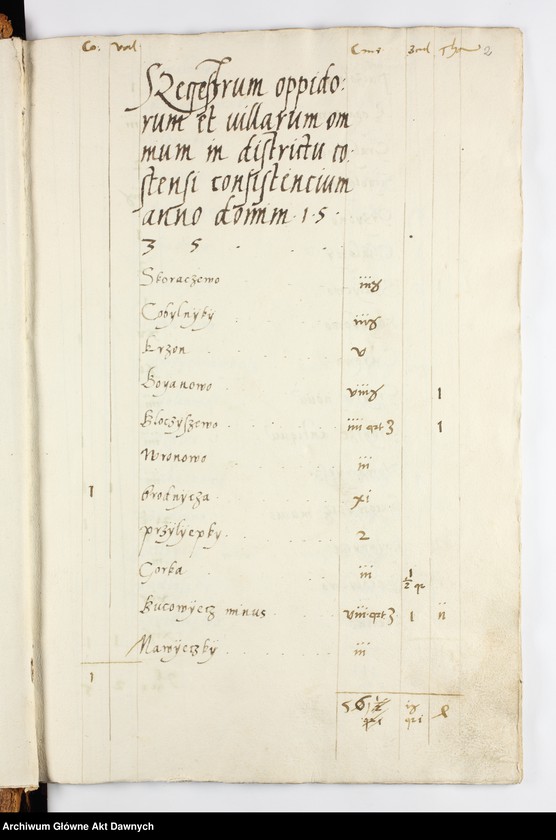 Co: val Cme 3ad 2
Regestrum oppido:
rum et villarum om
nium in districtu co
stensi consistencium
anno domini 1 5
3 5
Skoraczewo
Cobylnyky
Krzon v
Boyanowo 1
Kloczyszewo 1
Wronowo iii
1 brodnycza xi
przylyepky 2
Gorka iii 1/2
Kucowyecz minus 1 ii
Mawyeczky iii
1
Archiwum Główne Akt Dawnych